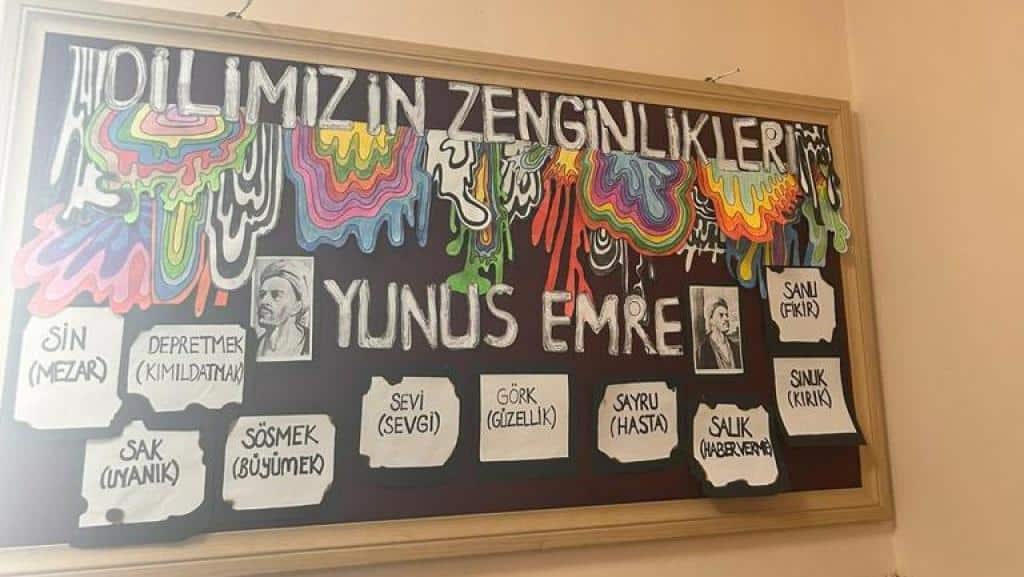 DİLİMİZİN ZENGİNLİKLERİ
YUNUS EMRE
SİN
(MEZAR)
DEPRETMEK
(KIMILDATMAK)
SANU
(FİKİR)
SAK
(UYANIK)
SÖSMEK
(BÜYÜMEK)
SEVİ
(SEVGİ)
GÖRK
(GÜZELLİK)
SAYRU
(HASTA)
SALIK
(HABER VERME)
SINUK
(KIRIK)